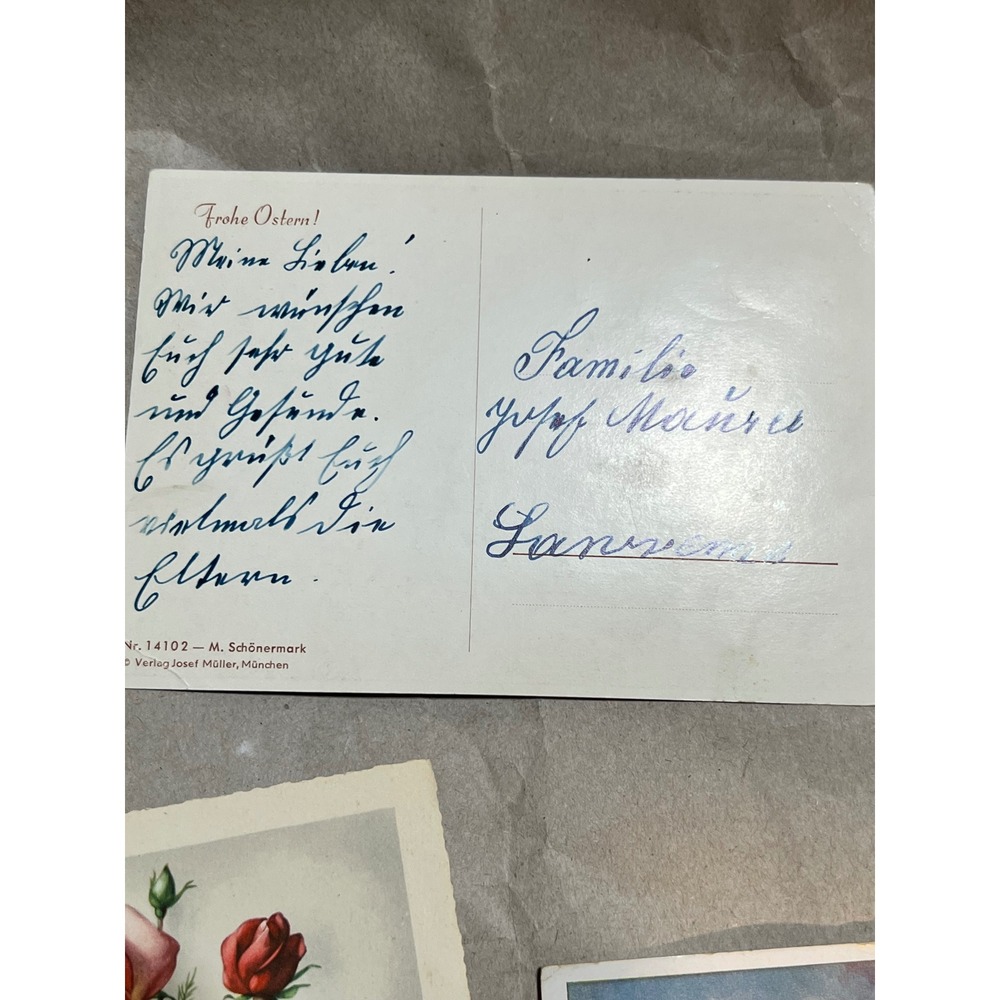 Frohe Ostern!
Meine Lieben!
Wir wünschen
Euch sehr gute
und Gesunde.
Es grüßt Euch
vielmals die
Eltern.
Nr. 14102 — M. Schönermark
© Verlag Josef Müller, München
Familie
Josef